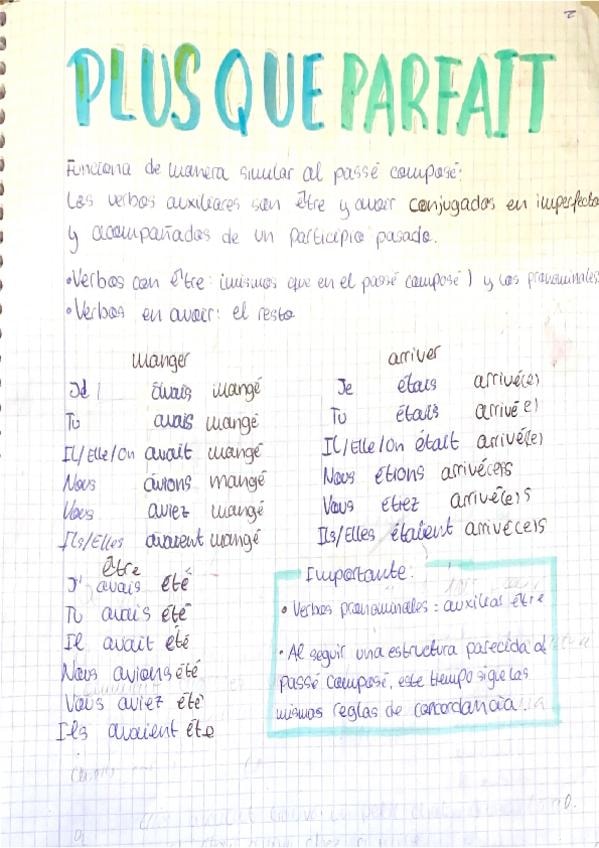 PLUS QUE PARFAIT
Funciona de manera similar al passé composé:
Los verbos auxiliares son être y avoir conjugados en imperfecto
y acompañados de un participio pasado.
•Verbos con être: (mismos que en el passé composé) y los pronominales
•Verbos en avoir: el resto
manger
J'avais mangé
Tu avais mangé
Il/Elle/On avait mangé
Nous avions mangé
Vous aviez mangé
Ils/Elles avaient mangé
arriver
Je étais arrivé(e)
Tu étais arrivé(e)
Il/Elle/On était arrivé(e)
Nous étions arrivé(e)s
Vous étiez arrivé(e)s
Ils/Elles étaient arrivé(e)s
être
J'avais été
Tu avais été
Il avait été
Nous avions été
Vous aviez été
Ils avaient été
Importante:
• Verbos pronominales: auxiliar être
• Al seguir una estructura parecida al
passé composé, este tiempo sigue las
mismas reglas de concordancia